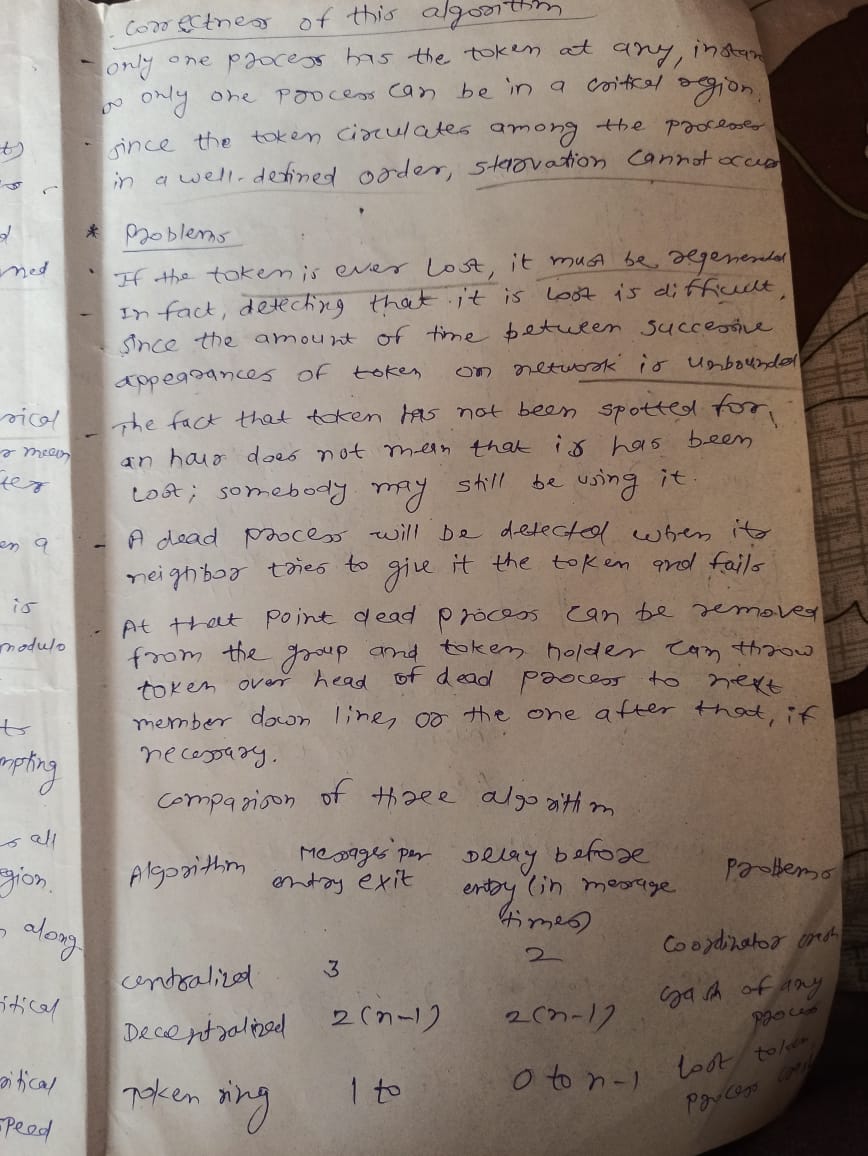 correctness of this algorithm
- only one process has the token at any, instan
so only one process can be in a critcal region.
. since the token circulates among the processes
in a well-defined order, starvation cannot occur
* Problems
. If the token is ever lost, it must be regenerated
- In fact, detecting that it is lost is difficult,
since the amount of time between successive
appearances of token on network is unbounded
- The fact that token has not been spotted for
an hour does not mean that is has been
lost; somebody may still be using it.
- A dead process will be detected when its
neighbor tries to give it the token and fails
. At that point dead process can be removed
from the group and token holder can throw
token over head of dead process to next
member down line, or the one after that, if
necessary.
comparison of three algorithm
Algorithm Messages per entry exit Delay before entry (in message times) Problems
centralized 3 2 Coordinator crash
Decentralized 2(n-1) 2(n-1) crash of any process
Token ring 1 to 0 to n-1 lost token, process
ned
rical
mean
ter
en a
is
modulo
to
mpting
s all
gion.
along
itical
ritical
speed